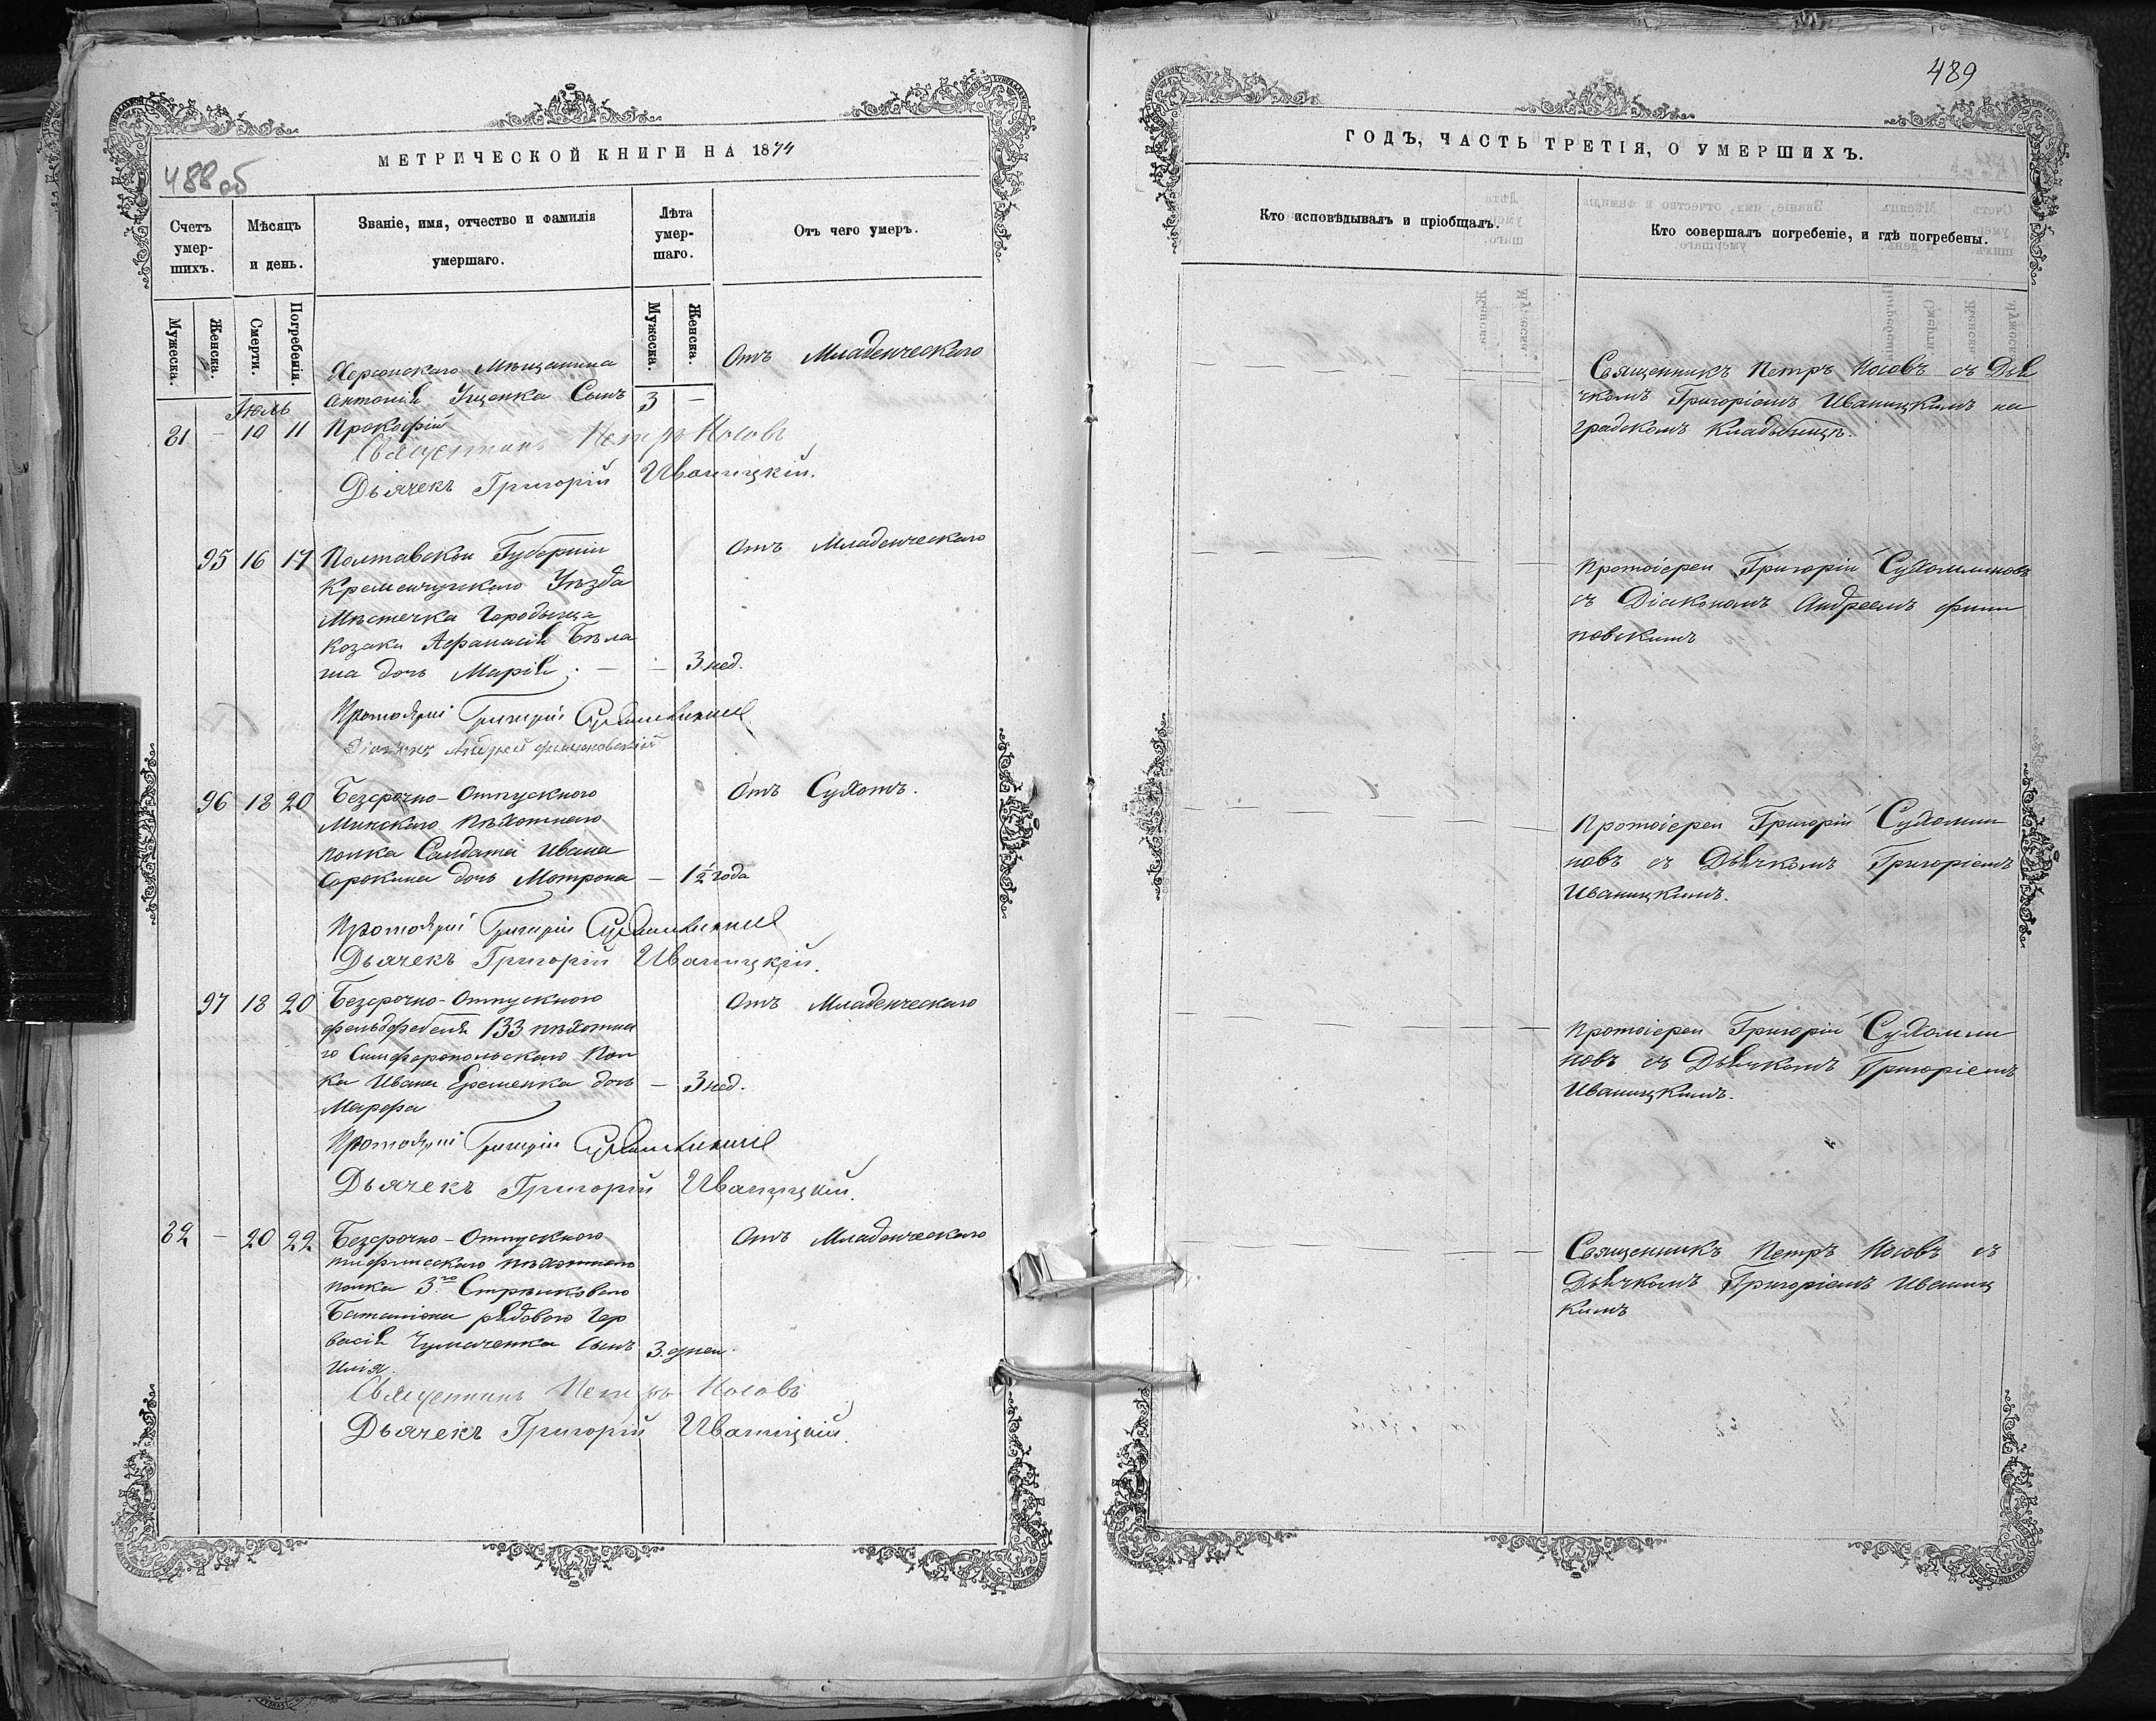 488 об
МЕТРИЧЕСКОЙ КНИГИ НА 1874
Счетъ умер-шихъ.
Мѣсяцъ и день.
Званіе, имя, отчество и фамилія умершаго.
Лѣта умер-шаго.
Отъ чего умеръ.
Мужеска.
Женска.
Смерти.
Погребенія.
Мужеска.
Женска.
Іюль
Херсонскаго Мѣщанина
Антонія Ищенка Сынъ 3 —
81 — 10 11 Прокофій
Отъ Младенческаго
Священникъ Петръ Носовъ
Дьячекъ Григорій Иваницкій.
95 16 17 Полтавской Губерніи
Отъ Младенческаго
Кременчугскаго Уѣзда
Мѣстечка Городыща
Козака Афанасія Бѣла
ша дочь Марія. — — 3 нед.
Протоіерей Григорій Сухомлиновъ
Діаконъ Андрей
96 18 20 Безсрочно-Отпускного
Отъ Сухотъ.
Минскаго пѣхотнаго
полка Салдата Ивана
Сорокина дочь Мотрона — 1½ года
Протоіерей Григорій Сухомлиновъ
Дьячекъ Григорій Иваницкій.
97 18 20 Безсрочно-Отпускного
Отъ Младенческаго
фельдфебеля 133 пѣхотна
го Симферопольскаго Пол
ка Ивана Ерешенка дочь — 3 нед.
Марфа
Протоіерей Григорій Сухомлиновъ
Дьячекъ Григорій Иваницкій.
82 — 20 22 Безсрочно-Отпускного
Отъ Младенческаго
тифлисскаго пѣхотнаго
полка 3го Стрѣлковаго
Баталіона рядового Гер
васія Чумаченка Сынъ 3. дней.
Илія.
Священникъ Петръ Носовъ
Дьячекъ Григорій Иваницкій.
489
ГОДЪ, ЧАСТЬ ТРЕТІЯ, О УМЕРШИХЪ.
Кто исповѣдывалъ и пріобщалъ.
Кто совершалъ погребеніе, и гдѣ погребены.
Священникъ Петръ Носовъ съ Дья
чкомъ Григоріемъ Иваницкимъ на
градскомъ Кладбищѣ.
Протоіерей Григорій Сухомлиновъ
съ Діакономъ Андреемъ Филип
повскимъ
Протоіерей Григорій Сухомли
новъ съ Дьячкомъ Григоріемъ
Иваницкимъ.
Протоіерей Григорій Сухомли
новъ съ Дьячкомъ Григоріемъ
Иваницкимъ.
Священникъ Петръ Носовъ съ
Дьячкомъ Григоріемъ Иваниц
кимъ